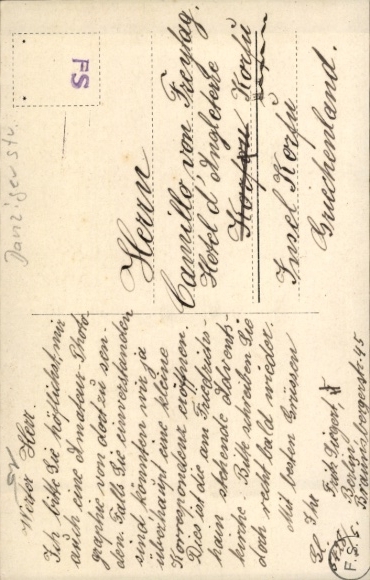 Danziger str.
FS
Herrn
Camillo von Freytag.
Hotel d'Angleterre
Korfu
Insel Korfu
Griechenland.
Werter Herr.
Ich bitte Sie höflichst, mir
auch eine Amateur-Photo-
graphie von dort zu sen-
den. Falls Sie einverstanden
sind, könnten wir ja
überhaupt eine kleine
Korrespondenz eröffnen.
Dies ist die am Friedrichs-
hain stehende
kirche. Bitte schreiben Sie
doch recht bald wieder.
Mit besten Grüssen
Ihr
Fritz
Berlin
Braunsbergerstr. 45
F. S.